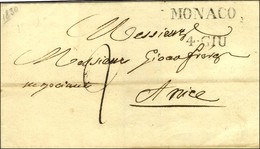 1830
MONACO
4. GIU
Messieurs
Messieurs Gioan freres
negociants
2
A nice